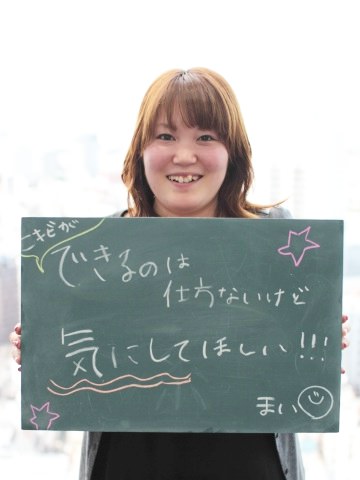 ニキビが
できるのは
仕方ないけど
気にしてほしい!!!
まい